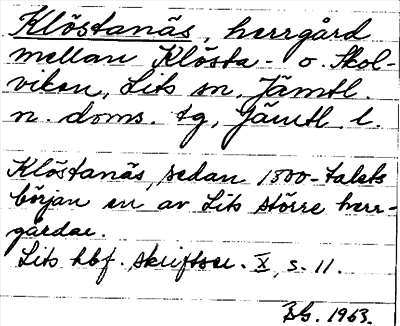 Klöstanäs, herrgård
mellan Klösta- o. Skol-
viken, Lits sn, Jämtl.
n. doms. tg, Jämtl. l.
Klöstanäs, sedan 1800-talets
början en av Lits större herr-
gårdar.
Lits hbf. skriftser. X, s. 11.
BG. 1963.